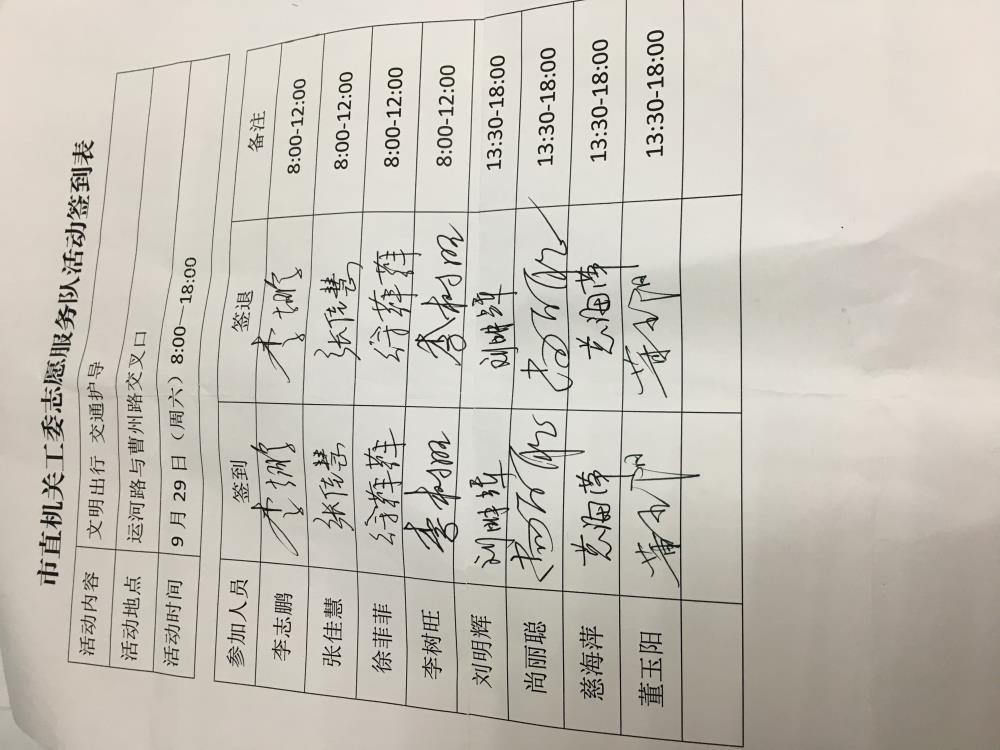 市直机关工委志愿服务队活动签到表
活动内容 文明出行 交通护导
活动地点 运河路与曹州路交叉口
活动时间 9 月 29 日（周六）8:00—18:00
参加人员 签到 签退 备注
李志鹏 李志鹏 李志鹏 8:00-12:00
张佳慧 张佳慧 张佳慧 8:00-12:00
徐菲菲 徐菲菲 徐菲菲 8:00-12:00
李树旺 李树旺 李树旺 8:00-12:00
刘明辉 刘明辉 刘明辉 13:30-18:00
尚丽聪 尚丽聪 尚丽聪 13:30-18:00
慈海萍 慈海萍 慈海萍 13:30-18:00
董玉阳 董玉阳 董玉阳 13:30-18:00